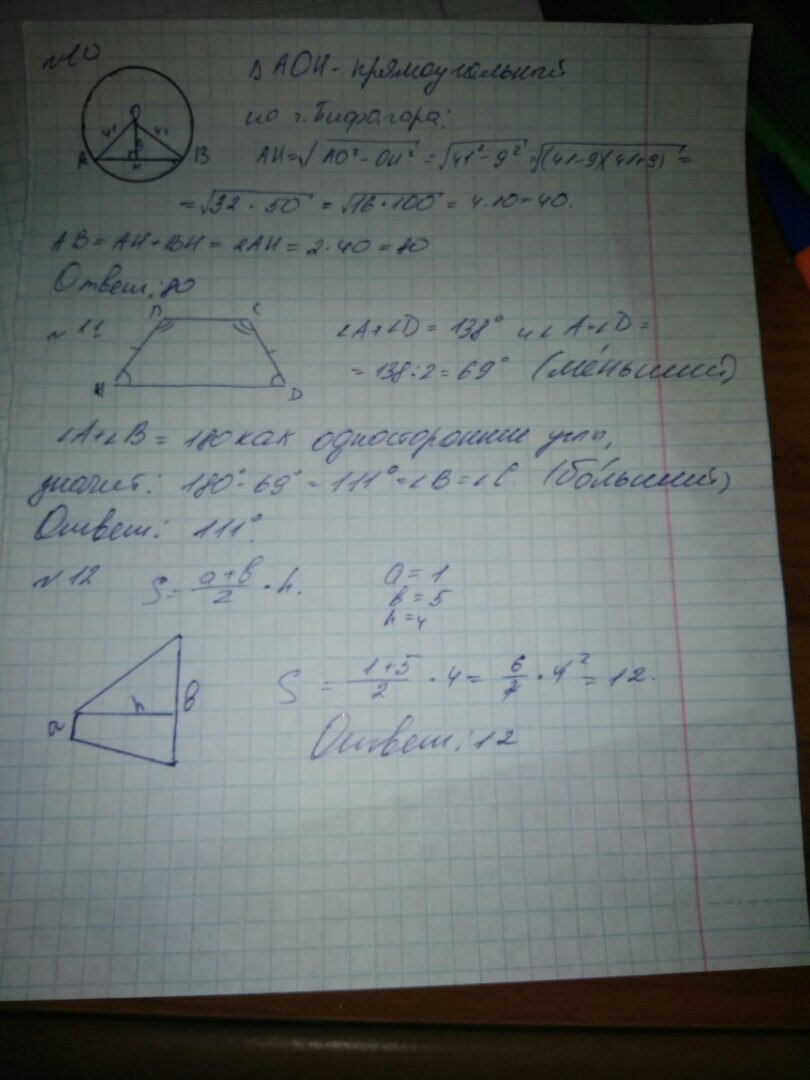 №10
O
41 41
9
A H B
△ AOH - прямоугольный
по т. Пифагора:
AH = √AO² - OH² = √41² - 9² = √(41-9)(41+9) =
= √32 · 50 = √16 · 100 = 4 · 10 = 40.
AB = AH + BH = 2AH = 2 · 40 = 80
Ответ: 80
№ 11
B C
A D
∠A + ∠D = 138° и ∠A = ∠D =
= 138 : 2 = 69° (ме́ньший)
∠A + ∠B = 180 как односторонние углы,
значит: 180° - 69° = 111° = ∠B = ∠C (бо́льший)
Ответ: 111°.
№ 12
S = a+b/2 · h.
a = 1
b = 5
h = 4
a h b
S = 1+5/2 · 4 = 6/2 · 4² = 12.
Ответ: 12